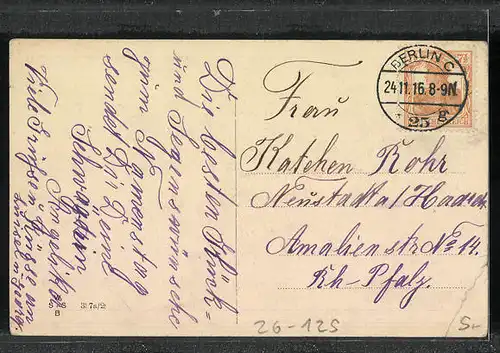 Die besten Glück-
und Segenswünsche
zum Namenstag
sendet Dir Deine
Schwägerin
Angelika
Viele Grüsse
BERLIN C
24.11.16.8-9N
* 25 g
Frau
Kätchen Rohr
Neustadt a/Haardt
Amalienstr No 14.
Rh-Pfalz.
S & S
B
26-125
5.-